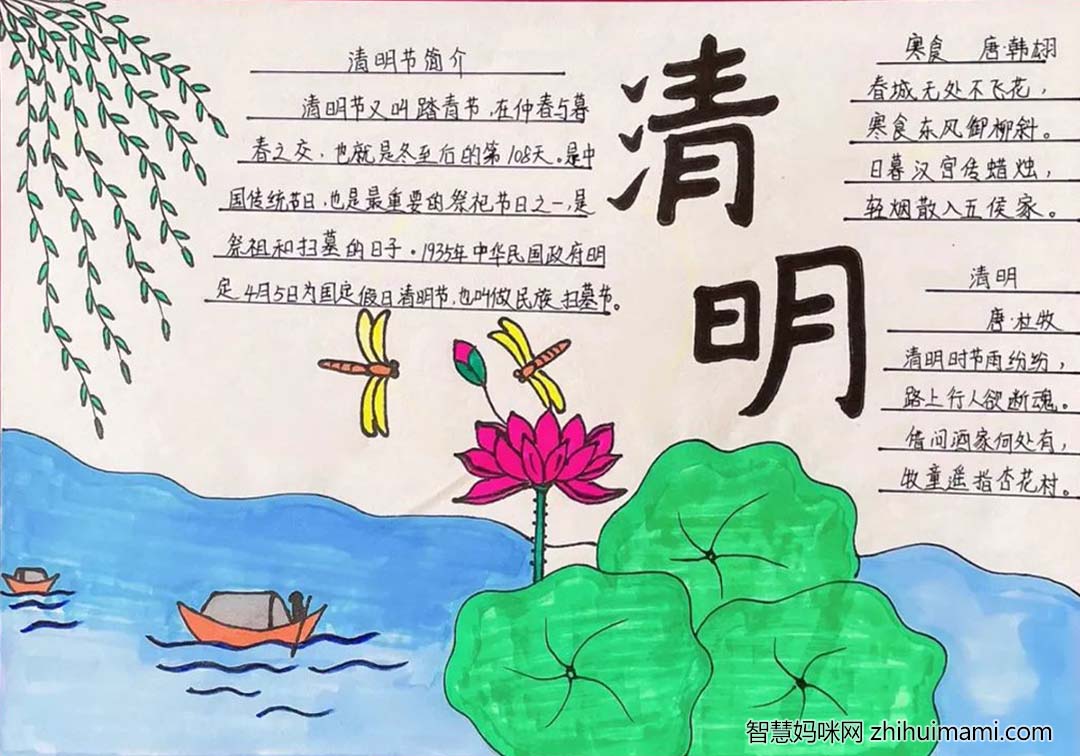 清明节简介
清明节又叫踏青节,在仲春与暮
春之交,也就是冬至后的第108天。是中
国传统节日,也是最重要的祭祀节日之一,是
祭祖和扫墓的日子。1935年中华民国政府明
定4月5日为国定假日清明节,也叫做民族扫墓节。
清
明
寒食 唐·韩翃
春城无处不飞花,
寒食东风御柳斜。
日暮汉宫传蜡烛,
轻烟散入五侯家。
清明
唐·杜牧
清明时节雨纷纷,
路上行人欲断魂。
借问酒家何处有,
牧童遥指杏花村。
智慧妈咪网 zhihuimami.com